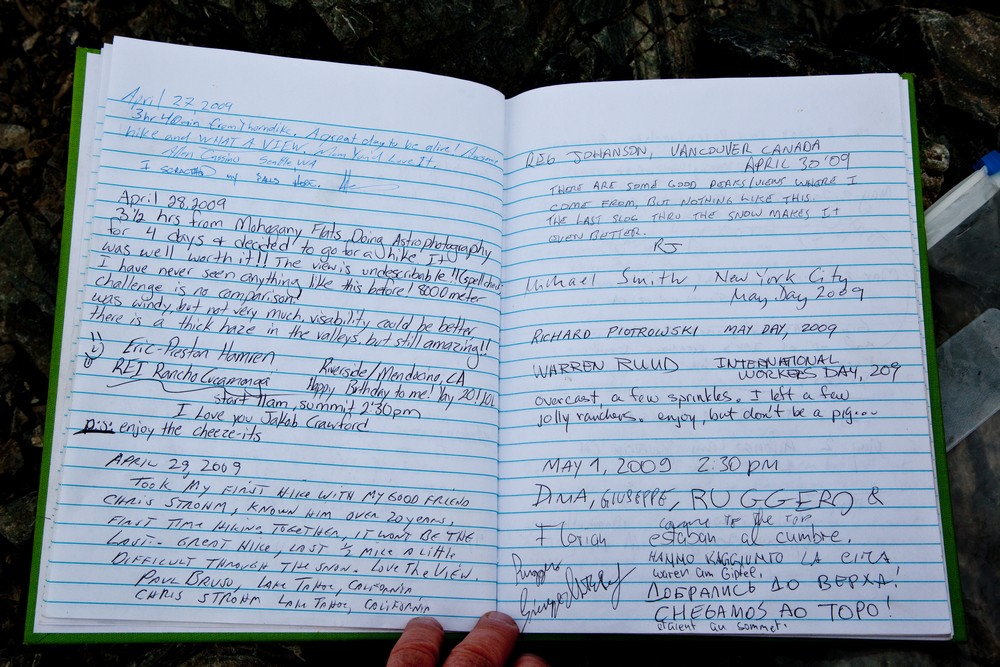 April 27 2009
3hr 40min from Thorndike. A great day to be alive! Awesome
hike and WHAT A VIEW. Mom You'd Love It.
Allen Seattle WA
I my
April 28, 2009
3 1/2 hrs from Mohogany Flats. Doing Astrophotography
for 4 days & decided to go for a hike. It
was well worth it!! The view is undescribable!! (spellcheck
I have never seen anything like this before! 8000 meter
challenge is no comparison!
was windy, but not very much, visability could be better
there is a thick haze in the valleys, but still amazing!!
Eric-Preston Hamren
REI Rancho Cucamonga Riverside/Mendocino, CA
Happy Birthday to me! May 20!
start 11am, summit 2:30pm
I Love you Jakob Crawford
P.S. enjoy the cheeze-its
APRIL 29, 2009
TOOK MY FIRST HIKE WITH MY GOOD FRIEND
CHRIS STROHM, KNOWN HIM OVER 20 YEARS,
FIRST TIME HIKING TOGETHER, IT WONT BE THE
LAST. GREAT HIKE, LAST 1/2 MILE A LITTLE
DIFFICULT THROUGH THE SNOW. LOVE THE VIEW.
PAUL BRUSO, LAKE TAHOE, CALIFORNIA
CHRIS STROHM LAKE TAHOE, CALIFORNIA
REG JOHANSON, VANCOUVER CANADA
APRIL 30 '09
THERE ARE SOME GOOD PEAKS/VIEWS WHERE I
COME FROM, BUT NOTHING LIKE THIS.
THE LAST SLOG THRU THE SNOW MAKES IT
EVEN BETTER.
RJ
Michael Smith, New York City
May Day 2009
RICHARD PIOTROWSKI MAY DAY, 2009
WARREN RUUD INTERNATIONAL
WORKERS DAY, 209
overcast, a few sprinkles. I left a few
jolly ranchers. enjoy, but don't be a pig...
MAY 1, 2009 2.30 pm
DIMA, GIUSEPPE, RUGGERO &
Florian
estaban al cumbre.
HANNO RAGGIUNTO LA CIMA
Ruggero
waren am Gipfel.
ДОБРАЛИСЬ ДО ВЕРХА!
CHEGAMOS AO TOPO!
étaient au sommet.